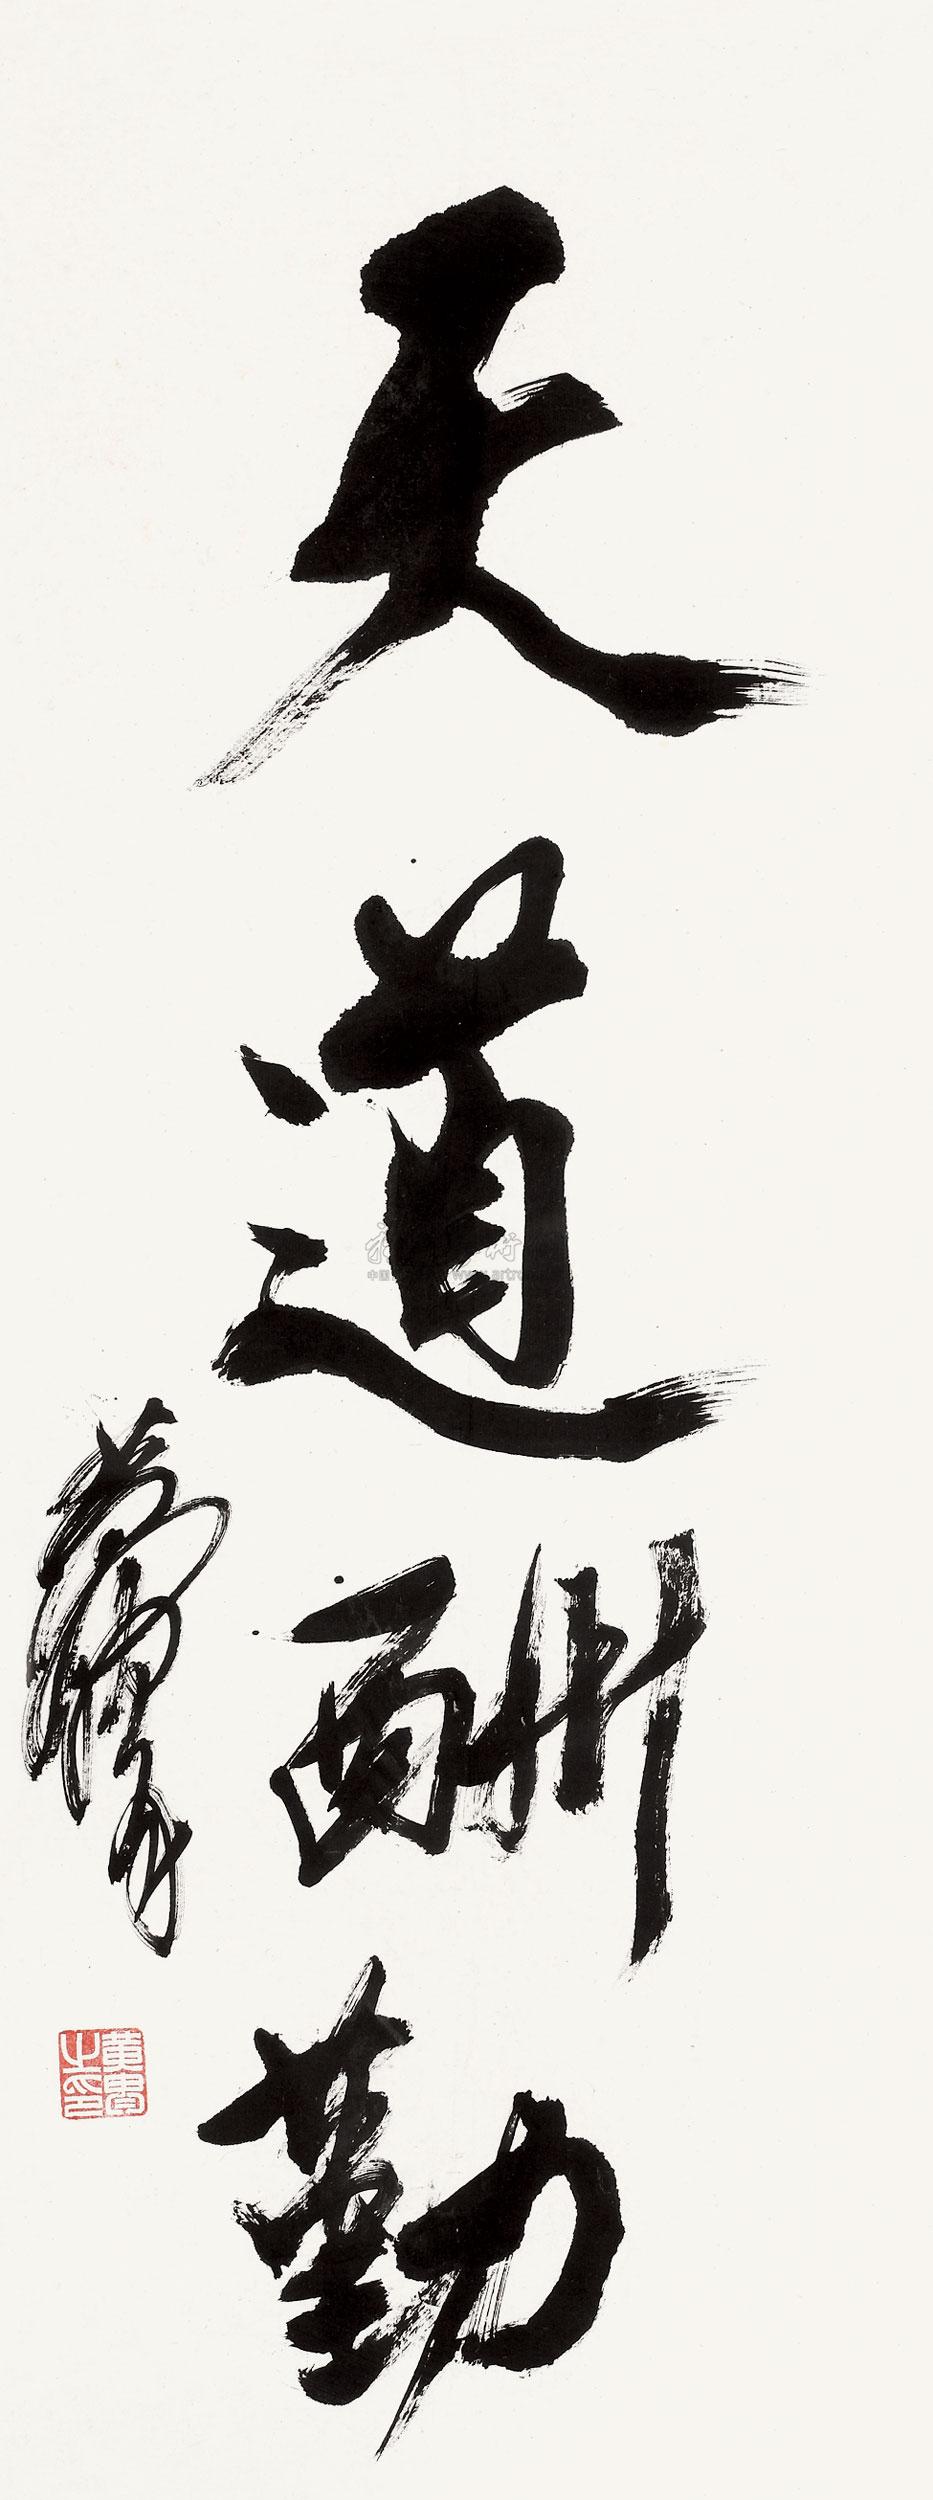 天道酬勤
黄胄之印